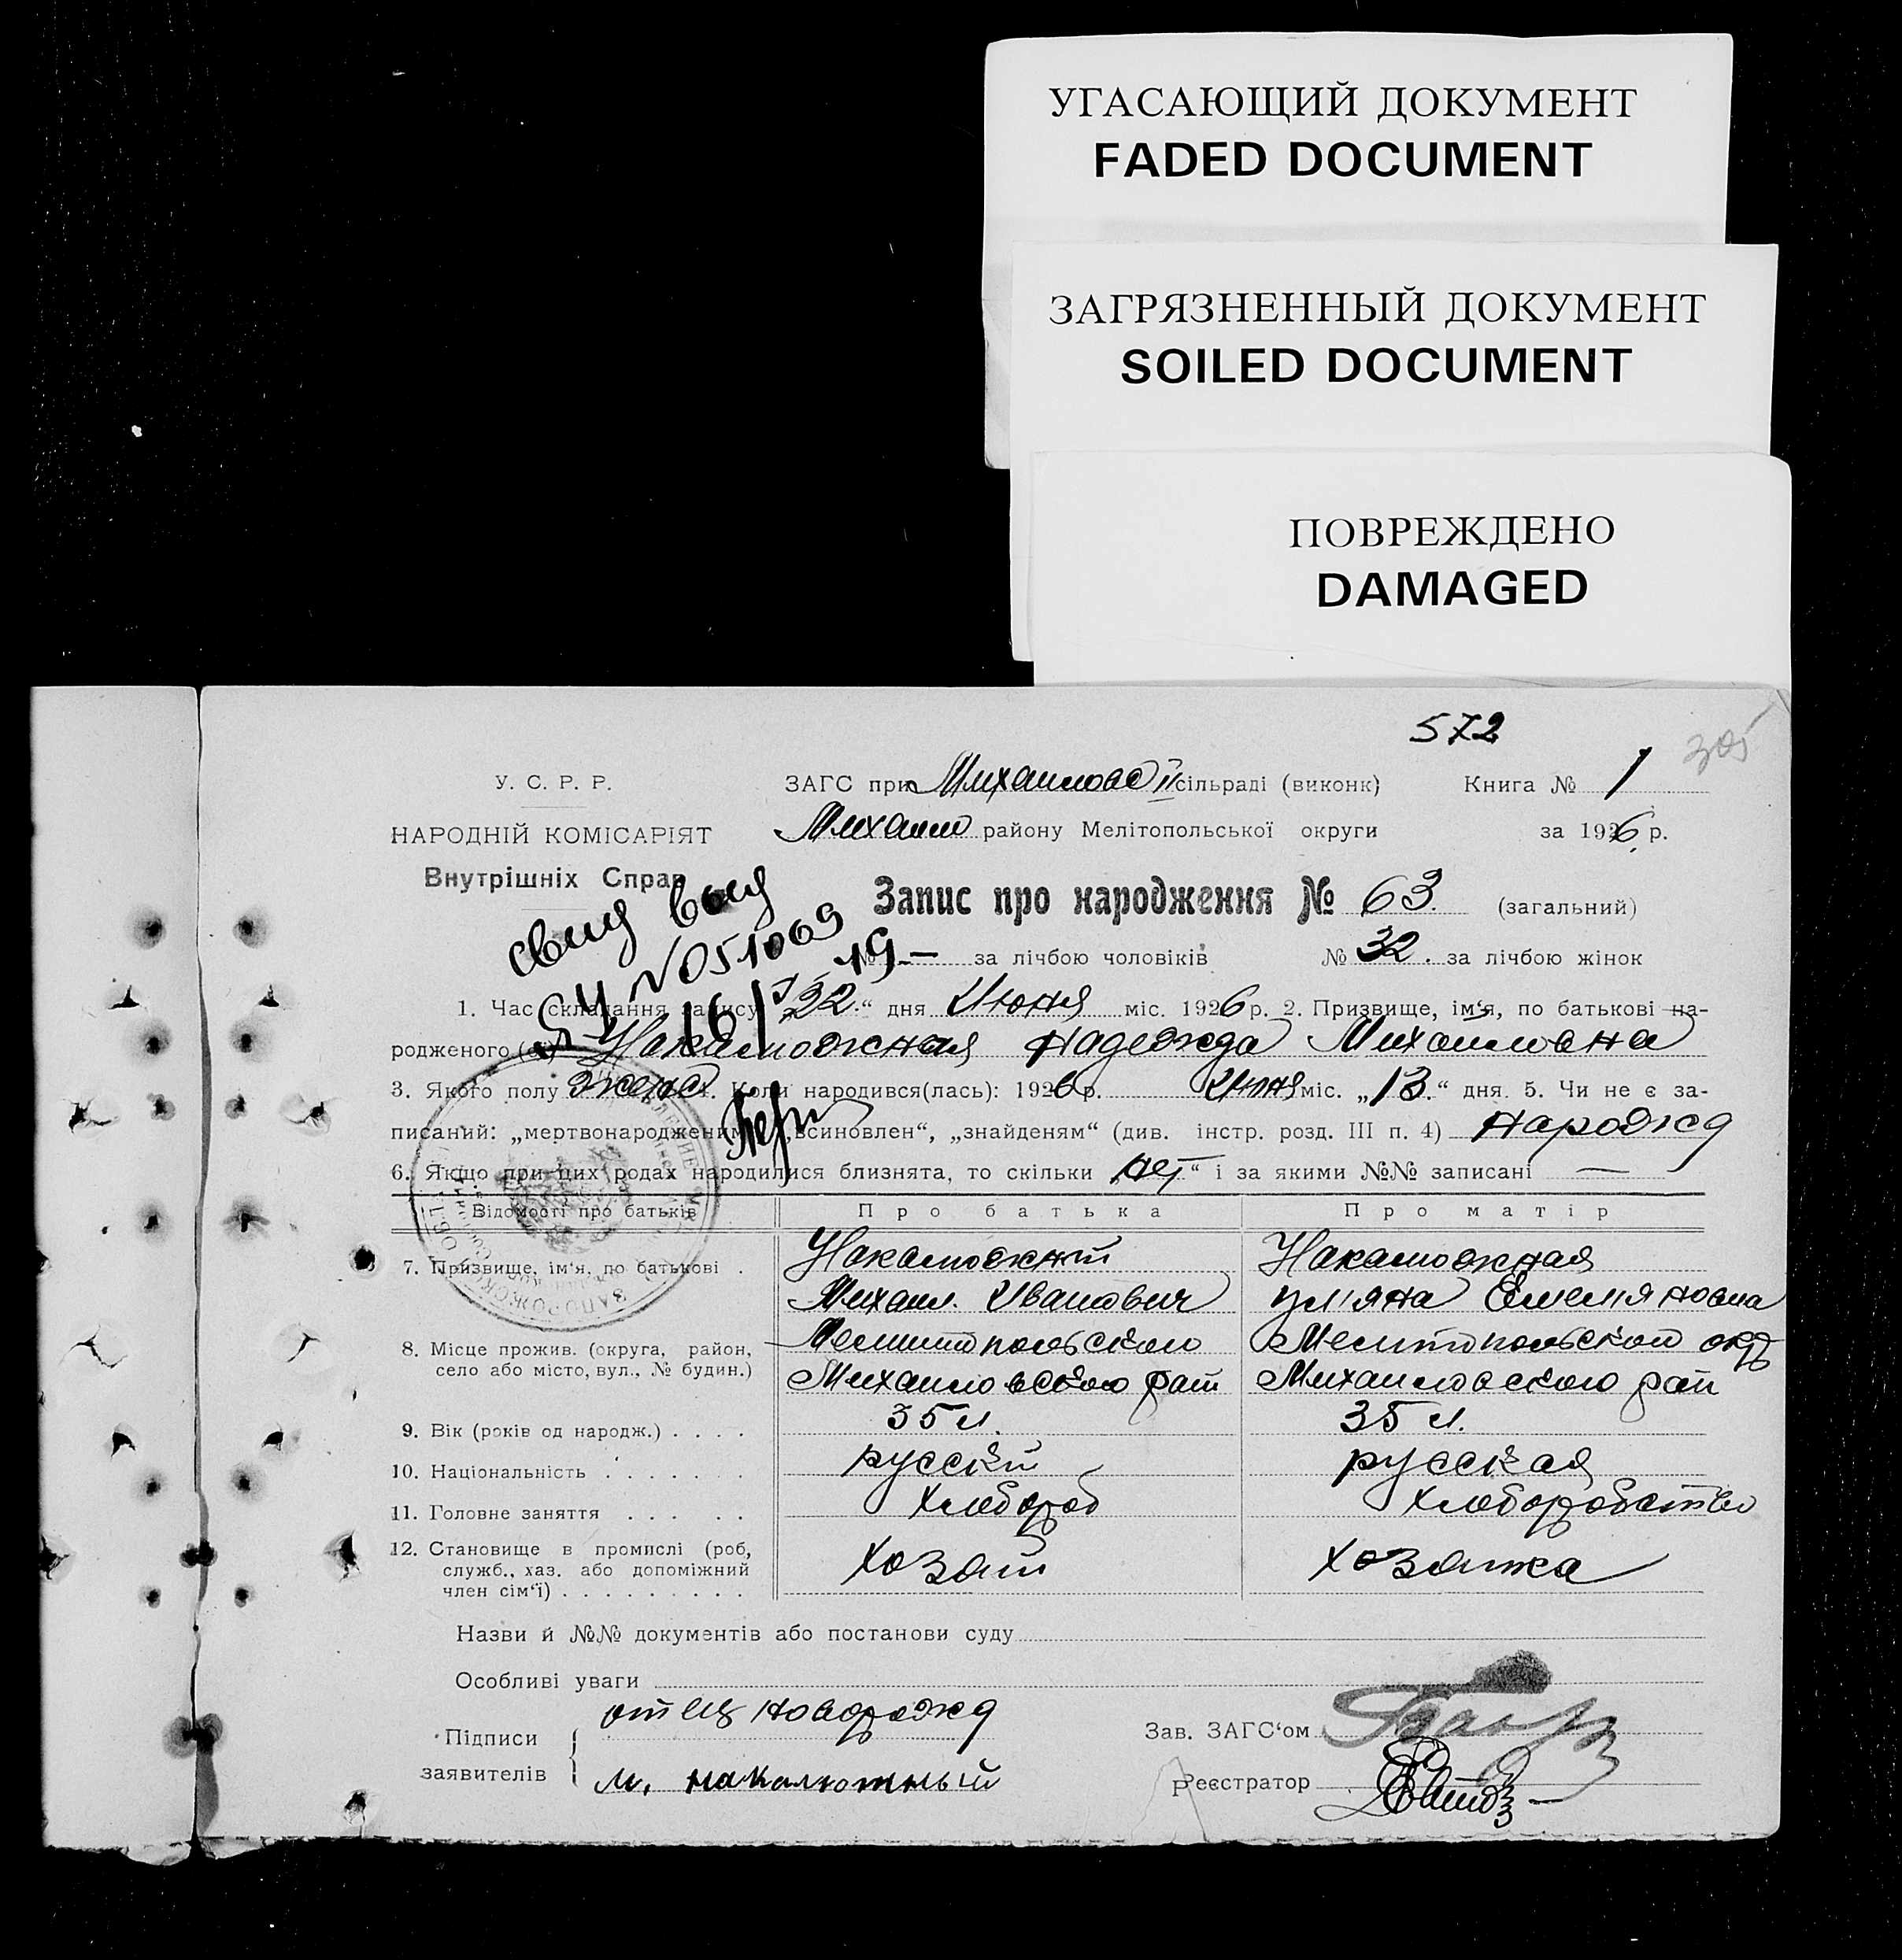 УГАСАЮЩИЙ ДОКУМЕНТ
FADED DOCUMENT
ЗАГРЯЗНЕННЫЙ ДОКУМЕНТ
SOILED DOCUMENT
ПОВРЕЖДЕНО
DAMAGED
572
305
У. С. Р. Р.
ЗАГС при Михайловс II сільраді (виконк) Книга № 1
НАРОДНІЙ КОМІСАРІЯТ
Михайло району Мелітопольської округи за 1926 р.
Внутрішніх Справ
Запис про народження № 63. (загальний)
свид выд
ЯЧ № 051069
№ — за лічбою чоловіків № 32. за лічбою жінок
1. Час складання запису „22.“ дня Июня міс. 1926 р. 2. Призвище, ім'я, по батькові на-
родженого (ої) Накалюжная Надежда Михайловна
3. Якого полу женс 4. Коли народився(лась): 1926 р. Июня міс. „13.“ дня. 5. Чи не є за-
писаний: „мертвонародженим“, „всиновлен“, „знайденям“ (див. інстр. розд. III п. 4) Народжд
6. Якщо при цих родах народилися близнята, то скільки „нет“ і за якими №№ записані —
Відомості про батьків Про батька Про матір
7. Призвище, ім'я, по батькові . Накалюжний Накалюжная
Михаил. Иванович Ульяна Емельяновна
8. Місце прожив. (округа, район, Мелитопольского Мелитопольской окр
село або місто, вул., № будин.) Михайловского рай Михайловского рай
9. Вік (років од народж.) . . . . 35 л. 35 л.
10. Національність . . . . . . . русскій русская
11. Головне заняття . . . . . хлебороб хлеборобство
12. Становище в промислі (роб, хозяин хозяйка
служб., хаз. або допоміжний
член сім'ї) . . . . . . . . .
Назви й №№ документів або постанови суду
Особливі уваги
отец новорожд
Підписи
заявителів
м. накалюжный
Зав. ЗАГС'ом
Реєстратор